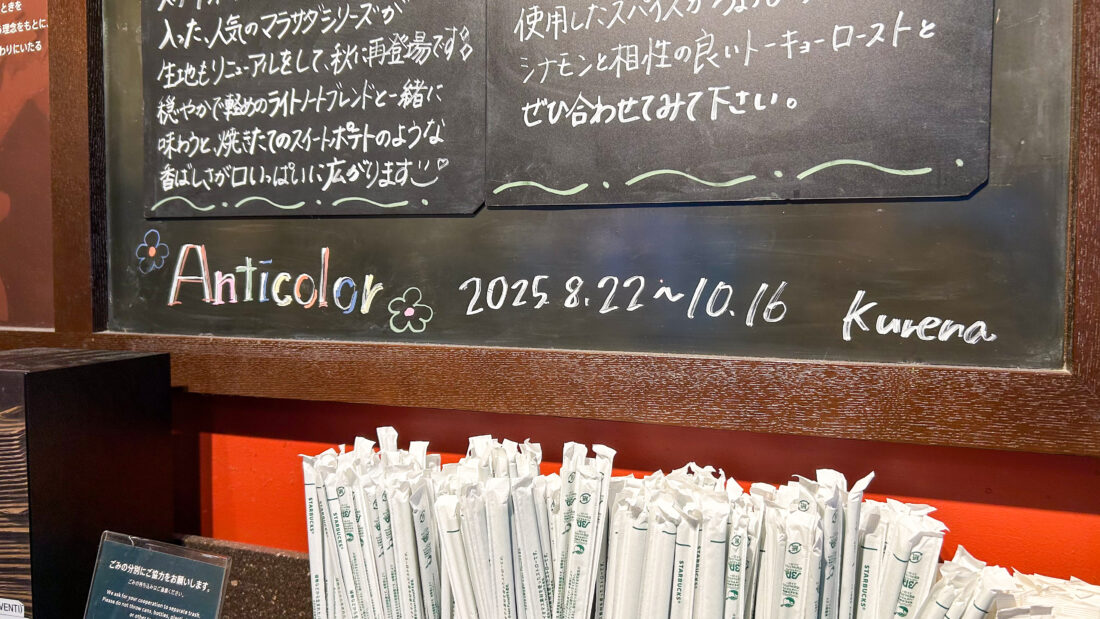 ときを
理念をもとに、
わりにいたる
入った、人気のマラサダシリーズが
生地もリニューアルをして、秋に再登場です
穏やかで軽めのライトノートブレンドと一緒に
味わうと、焼きたてのスイートポテトのような
香ばしさが口いっぱいに広がります
使用したスパイス
シナモンと相性の良いトーキョーローストと
ぜひ合わせてみて下さい。
Anticolor 2025.8.22〜10.16 Kurena
STARBUCKS
STARBUCKS
STARBUCKS
STARBUCKS
VENTI
ごみの分別にご協力をお願いします。
We ask for your cooperation to separate trash.
Please do not throw cans, bottles,